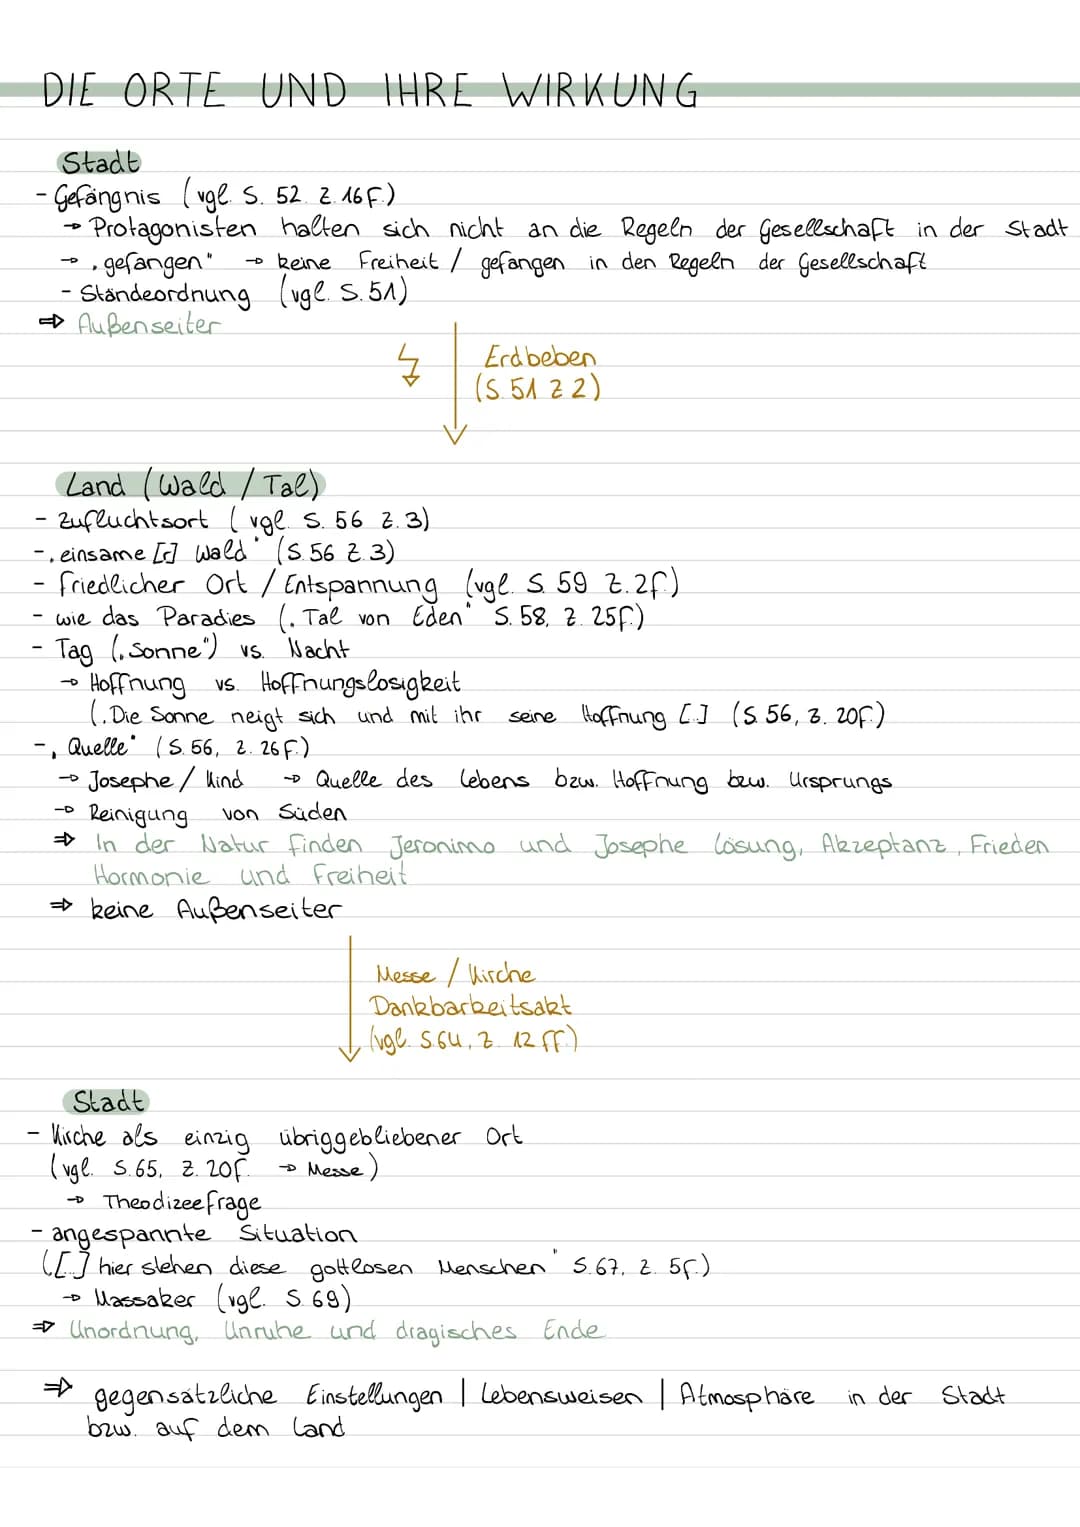 DIE ORTE UND IHRE WIRKUNG
Stadt
- Gefängnis (vgl. S. 52. Z. 16f.)
→ Protagonisten halten sich nicht an die Regeln der Gesellschaft in der Stadt
→ „gefangen" → keine Freiheit / gefangen in den Regeln der Gesellschaft
- Ständeordnung (vgl. S. 51)
⇒ Außenseiter
Erdbeben
(S. 51 Z 2)
Land (Wald / Tal)
- Zufluchtsort (vgl. S. 56 Z. 3)
- „einsame [r] Wald" (S. 56 Z. 3)
- friedlicher Ort / Entspannung (vgl. S. 59 Z. 2f.)
- wie das Paradies („Tal von Eden" S. 58, Z. 25f.)
- Tag („Sonne") vs. Nacht
→ Hoffnung vs. Hoffnungslosigkeit
(„Die Sonne neigt sich und mit ihr seine Hoffnung [..] (S. 56, Z. 20f.)
- „Quelle" (S. 56, Z. 26f.)
→ Josephe / Kind → Quelle des Lebens bzw. Hoffnung bzw. Ursprungs
→ Reinigung von Süden
⇒ In der Natur finden Jeronimo und Josephe Lösung, Akzeptanz, Frieden
Hormonie und Freiheit
⇒ keine Außenseiter
Messe / Kirche
Dankbarkeitsakt
(vgl. S. 64, Z. 12 ff.)
Stadt
- Kirche als einzig übriggebliebener Ort
(vgl. S. 65, Z. 20f. → Messe)
→ Theodizeefrage
- angespannte Situation
([..] hier stehen diese gottlosen Menschen" S. 67, Z. 5f.)
→ Massaker (vgl. S. 69)
⇒ Unordnung, Unruhe und dragisches Ende
⇒ gegensätzliche Einstellungen | Lebensweisen | Atmosphäre in der Stadt
bzw. auf dem Land